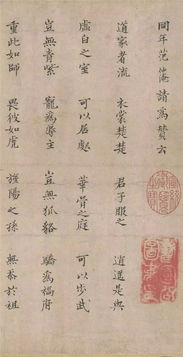 同年范仲淹請為贊云
道家者流 衣裳楚楚 君子服之 逍遙是與
虛白之室 可以居處 華胥之庭 可以步武
豈無青紫 寵為辱主 豈無狐貉 驕為禍府
重此如師 畏彼如虎 旌陽之孫 無忝於祖